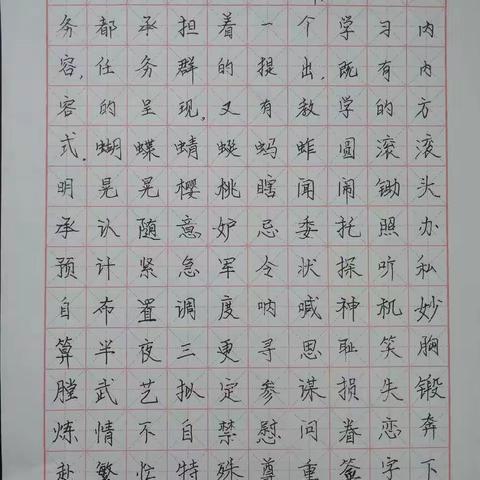 务都承担着一个学习内
容,任务群的提出,既有内
容的呈现,又有教学的方
式。蝴蝶蜻蜓蚂蚱圆滚滚
明晃晃樱桃瞎闻闹锄头
承认随意妒忌委托照办
预计紧急军令状探听私
自布置调度呐喊神机妙
算半夜三更寻思耻笑胸
膛武艺拟定参谋损失锻
炼情不自禁慰问眷恋奔
赴繁忙特殊尊重签字下